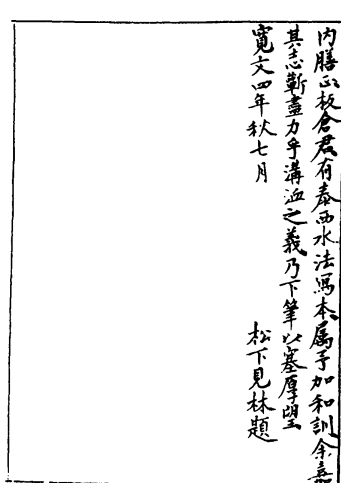 内膳正板倉君有泰西水法寫本属予加和訓余嘉
其志勤盡力乎溝洫之義乃下筆以塞厚望
寛文四年秋七月
松下見林題